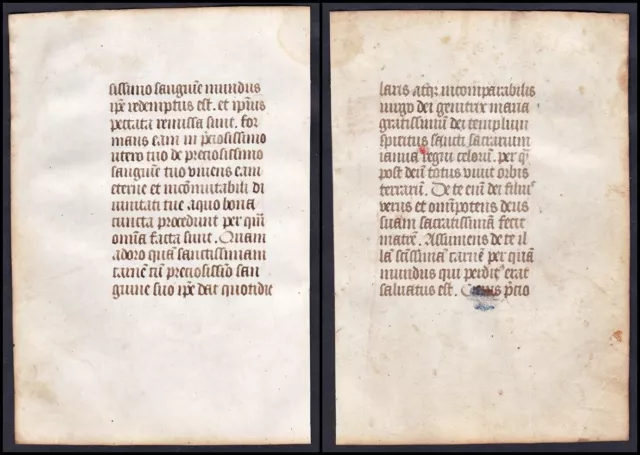 sissimo sanguīe mundus
ip̄e redemptus est. et ip̄ius
peccata remissa sunt. for
mans eam in p̄ciosissimo
utero tuo de preciosissimo
sanguīe tuo vivens eam
eterne et incōmutabili di
vinitati tue a quo bona
cuncta procedunt per quē
omīa facta sunt. Quam
adoro quā sanctissimam
carnē cū preciosissīo san
guine suo ip̄e dat quotidie
laris atq̄ incomparabilis
virgo dei genitrix maria
gratissimū dei templum
spiritus sancti sacrarium
ianua regni celorū. per q̄
post deū totus vivit orbis
terrarū. De te enī dei filius
verus et omīpotens deus
suam sacratissimā fecit
matrē. Assumens de te il
lā scīssimā carnē per quā
mundus qui perditus erat
salvatus est. p̄cio